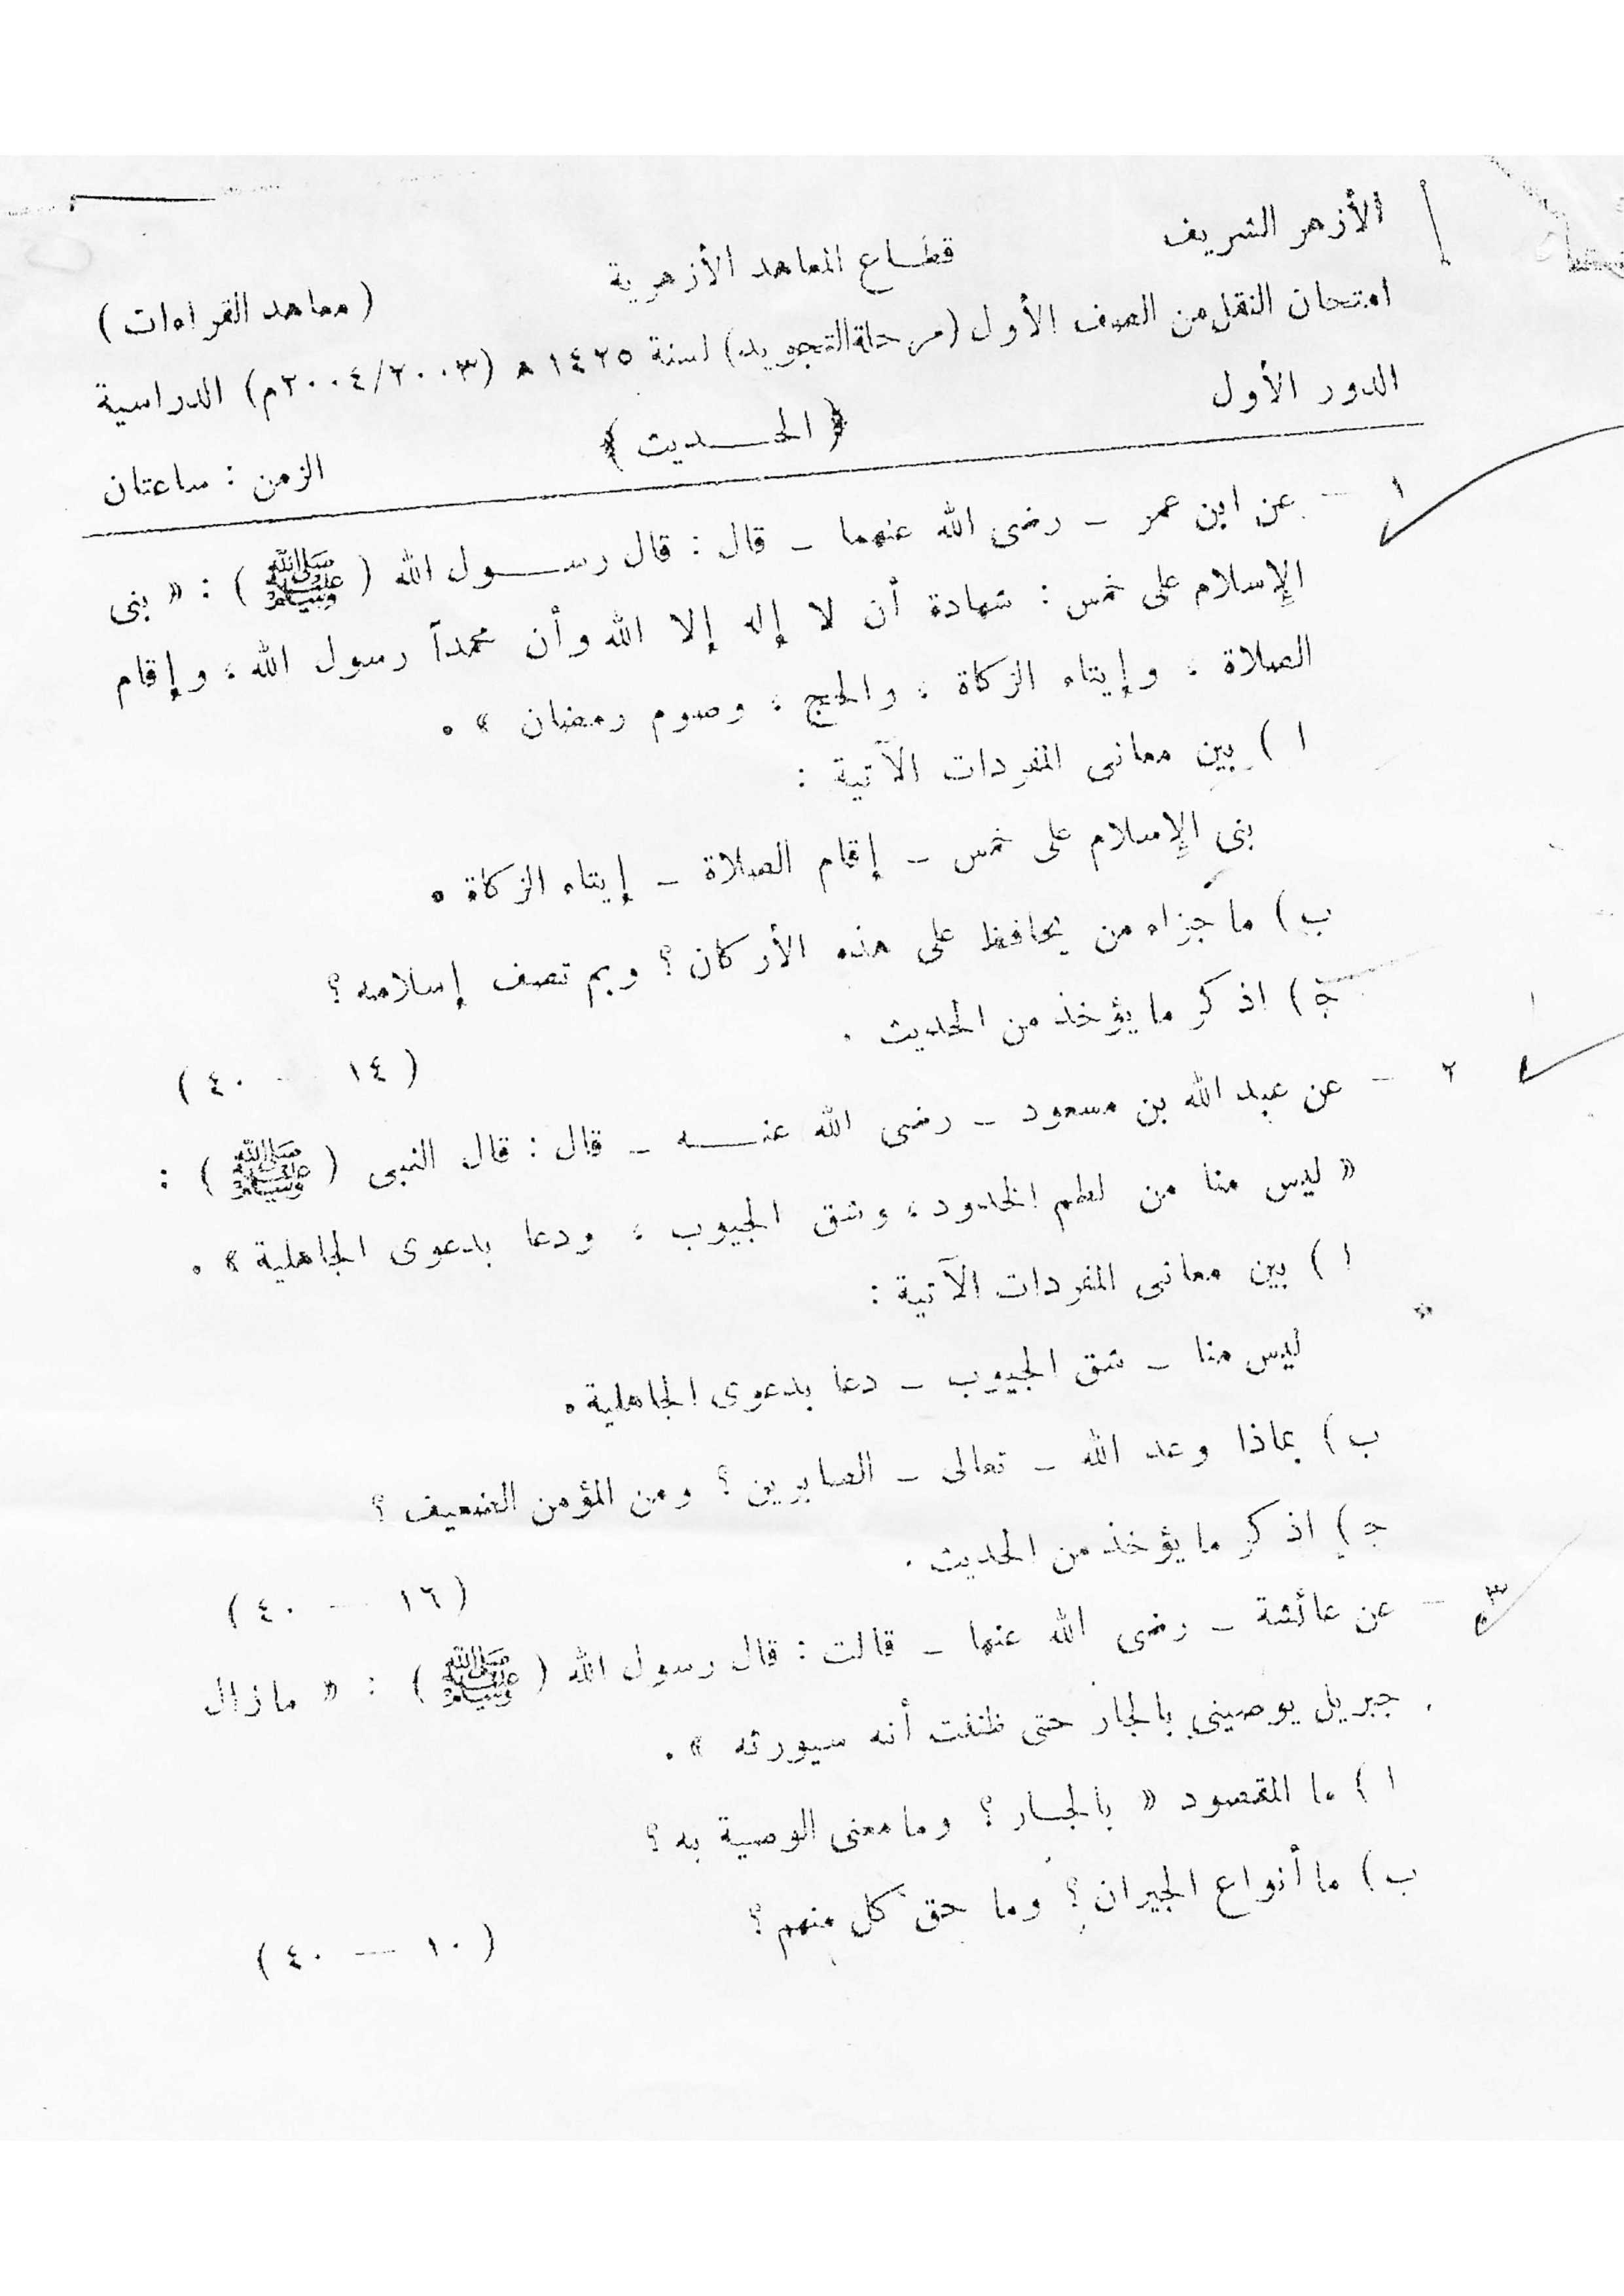 الأزهر الشريف
قطـاع المعاهد الأزهرية
(معاهد القراءات)
امتحان النقل من الصف الأول (مرحلة التجويد) لسنة ١٤٢٥ هـ (٢٠٠٤/٢٠٠٣م) الدراسية
الدور الأول
﴿الحـــديث﴾
الزمن : ساعتان
١ – عن ابن عمر – رضى الله عنهما – قال : قال رســـول الله (ﷺ) : « بنى
الإسلام على خمس : شهادة أن لا إله إلا الله وأن محمداً رسول الله ، وإقام
الصلاة ، وإيتاء الزكاة ، والحج ، وصوم رمضان » .
ا ) بين معانى المفردات الآتية :
بنى الإسلام على خمس – إقام الصلاة – إيتاء الزكاة .
ب) ما جزاء من يحافظ على هذه الأركان ؟ وبم تصف إسلامه ؟
جـ) اذكر ما يؤخذ من الحديث .
(١٤ – ٤٠)
٢ – عن عبد الله بن مسعود – رضى الله عنـــه – قال : قال النبى (ﷺ) :
« ليس منا من لطم الخدود ، وشق الجيوب ، ودعا بدعوى الجاهلية » .
ا ) بين معانى المفردات الآتية :
ليس منا – شق الجيوب – دعا بدعوى الجاهلية .
ب) بماذا وعد الله – تعالى – الصابرين ؟ ومن المؤمن الضعيف ؟
جـ) اذكر ما يؤخذ من الحديث .
(١٦ – ٤٠)
٣ – عن عائشة – رضى الله عنها – قالت : قال رسول الله (ﷺ) : « مازال
جبريل يوصينى بالجار حتى ظننت أنه سيورثه » .
ا ) ما المقصود « بالجـار ؟ وما معنى الوصية به ؟
ب) ما أنواع الجيران ؟ وما حق كل منهم ؟
(١٠ – ٤٠)